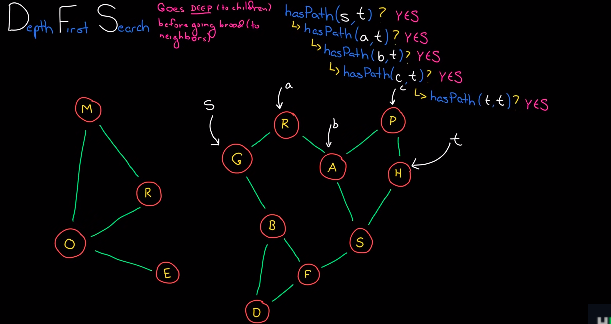 Depth First Search
Goes DEEP (to children)
before going broad (to
neighbors)
hasPath(s,t)? YES
hasPath(a,t)? YES
hasPath(b,t)? YES
hasPath(c,t)? YES
hasPath(t,t)? YES
a
c
s
b
t
M
R
P
G
A
H
R
B
O
S
E
F
D